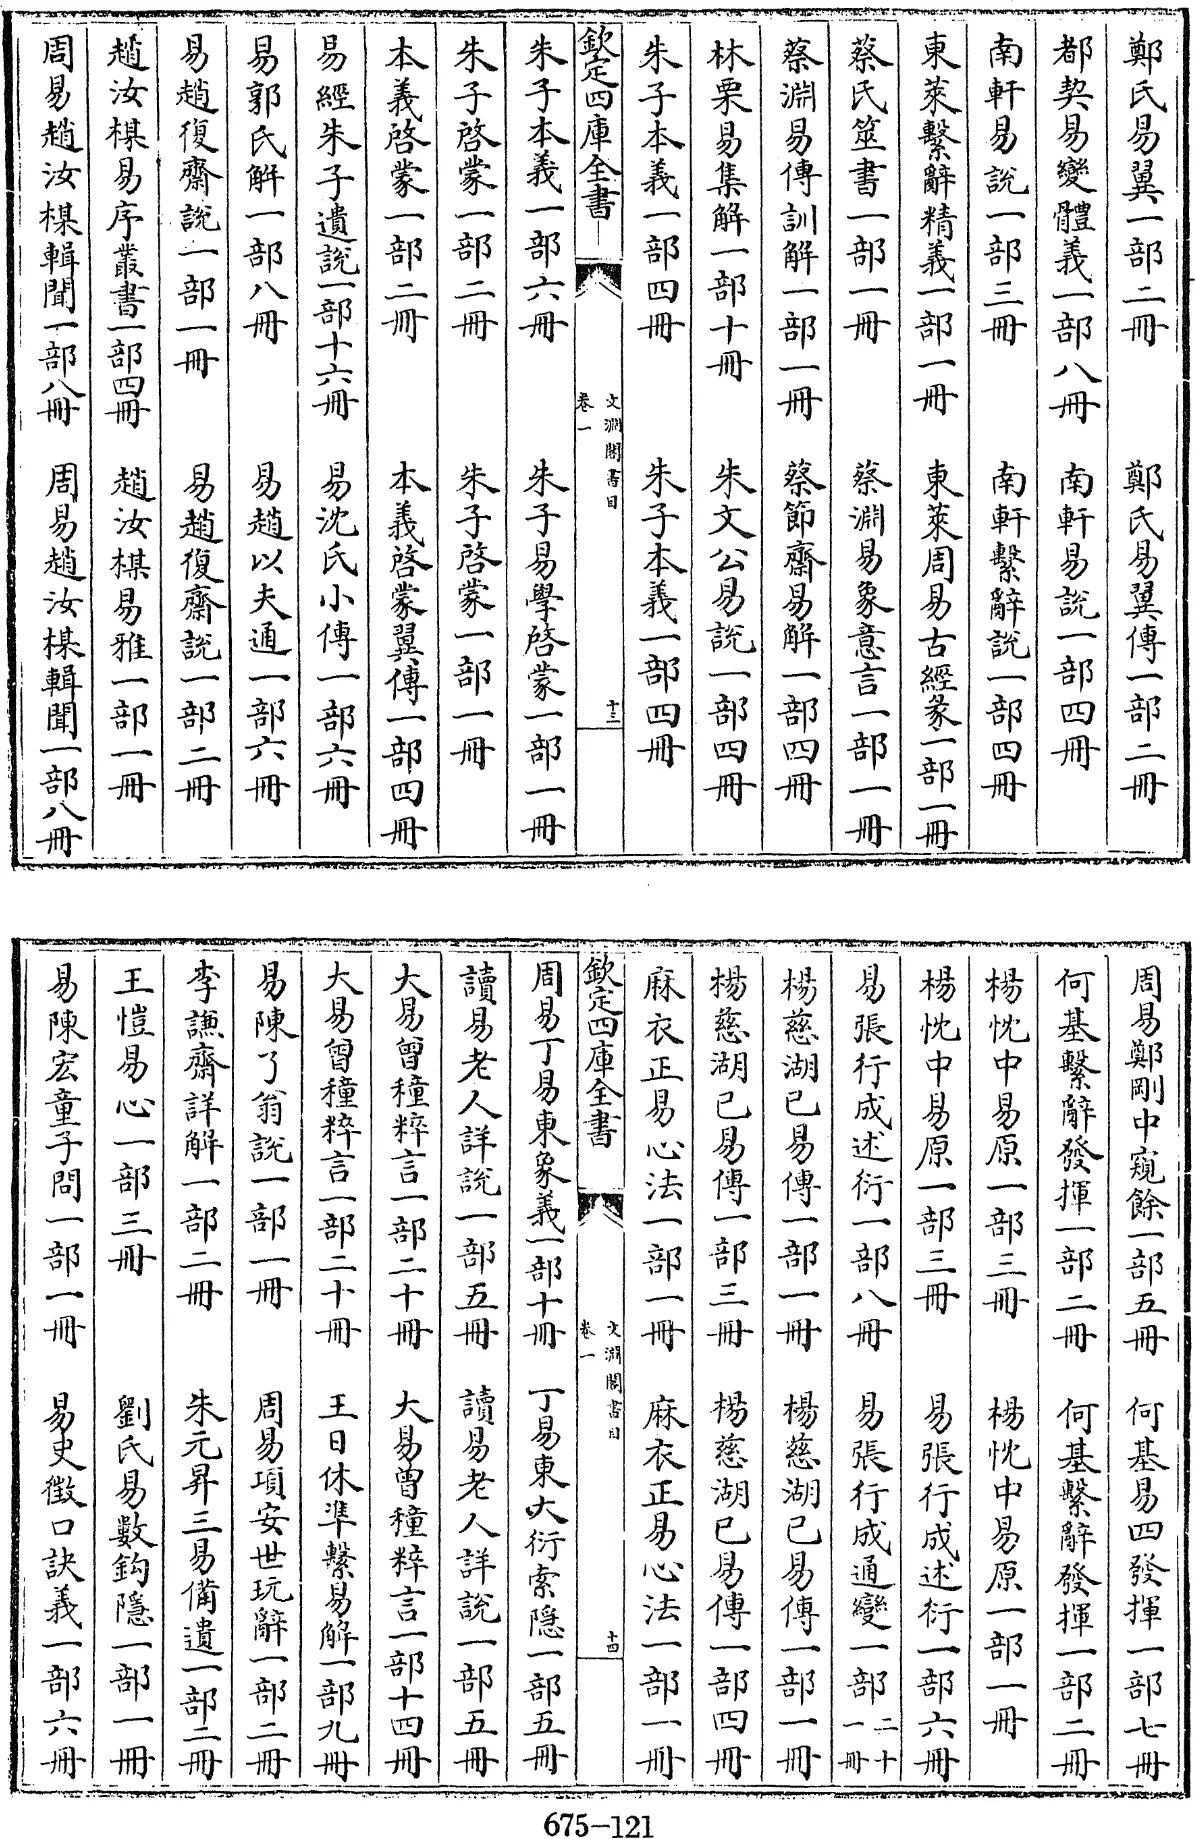 鄭氏易翼一部二冊　鄭氏易翼傳一部二冊
都契易變體義一部八冊　南軒易說一部四冊
南軒易說一部三冊　南軒繫辭說一部四冊
東萊繫辭精義一部一冊　東萊周易古經篆一部一冊
蔡氏筮書一部一冊　蔡淵易象意言一部一冊
蔡淵易傳訓解一部一冊　蔡節齋易解一部四冊
林栗易集解一部十冊　朱文公易說一部四冊
朱子本義一部四冊　朱子本義一部四冊
欽定四庫全書　文淵閣書目　卷一　十三
朱子本義一部六冊　朱子易學啓蒙一部一冊
朱子啓蒙一部二冊　朱子啓蒙一部一冊
本義啓蒙一部二冊　本義啓蒙翼傳一部四冊
易經朱子遺說一部十六冊　易沈氏小傳一部六冊
易郭氏解一部八冊　易趙以夫通一部六冊
易趙復齋說一部一冊　易趙復齋說一部二冊
趙汝楳易序叢書一部四冊　趙汝楳易雅一部一冊
周易趙汝楳輯聞一部八冊　周易趙汝楳輯聞一部八冊
周易鄭剛中窺餘一部五冊　何基易四發揮一部七冊
何基繫辭發揮一部二冊　何基繫辭發揮一部二冊
楊忱中易原一部三冊　楊忱中易原一部一冊
楊忱中易原一部三冊　易張行成述衍一部六冊
易張行成述衍一部八冊　易張行成通變一部二十一冊
楊慈湖已易傳一部一冊　楊慈湖已易傳一部一冊
楊慈湖已易傳一部三冊　楊慈湖已易傳一部四冊
麻衣正易心法一部一冊　麻衣正易心法一部一冊
欽定四庫全書　文淵閣書目　卷一　十四
周易丁易東象義一部十冊　丁易東大衍索隱一部五冊
讀易老人詳說一部五冊　讀易老人詳說一部五冊
大易曾穜粹言一部二十冊　大易曾穜粹言一部十四冊
大易曾穜粹言一部二十冊　王日休準繫易解一部九冊
易陳了翁說一部一冊　周易項安世玩辭一部二冊
李謙齋詳解一部二冊　朱元昇三易備遺一部二冊
王愷易心一部三冊　劉氏易數鈎隱一部一冊
易陳宏童子問一部一冊　易史徵口訣義一部六冊
675-121